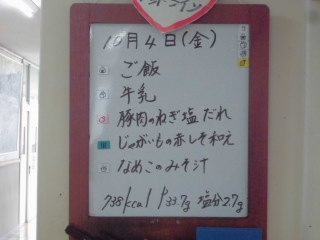 10月4日(金)
ご飯
牛乳
豚肉のねぎ塩だれ
じゃがいもの赤しそ和え
なめこのみそ汁
738kcal / 33.7g 塩分2.7g